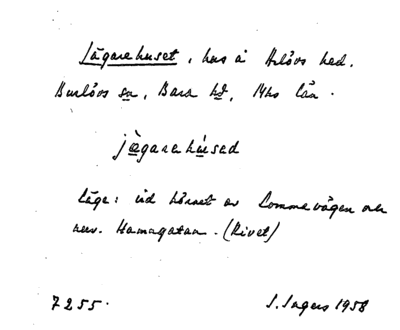 Jägarehuset, hus å Arlövs hed.
Burlövs sn, Bara hd, Mhs län.
jægarehúsed
Läge: vid hörnet av Lommavägen och
nuv. Hamngatan. (Rivet)
7255. S. Ingers 1958